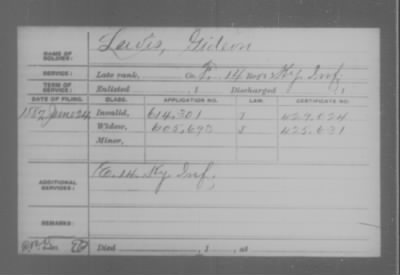 NAME OF SOLDIER: Lewis, Gideon
SERVICE: Late rank, Co. F, 14 Reg't Ky. Inf.
TERM OF SERVICE: Enlisted , 1 Discharged , 1
DATE OF FILING. CLASS. APPLICATION NO. LAW. CERTIFICATE NO.
1887 June 24 Invalid, 614,301 429,024
Widow, 605,690 425,631
Minor,
ADDITIONAL SERVICES: 14 Ky Inf.
REMARKS:
Died , 1 , at